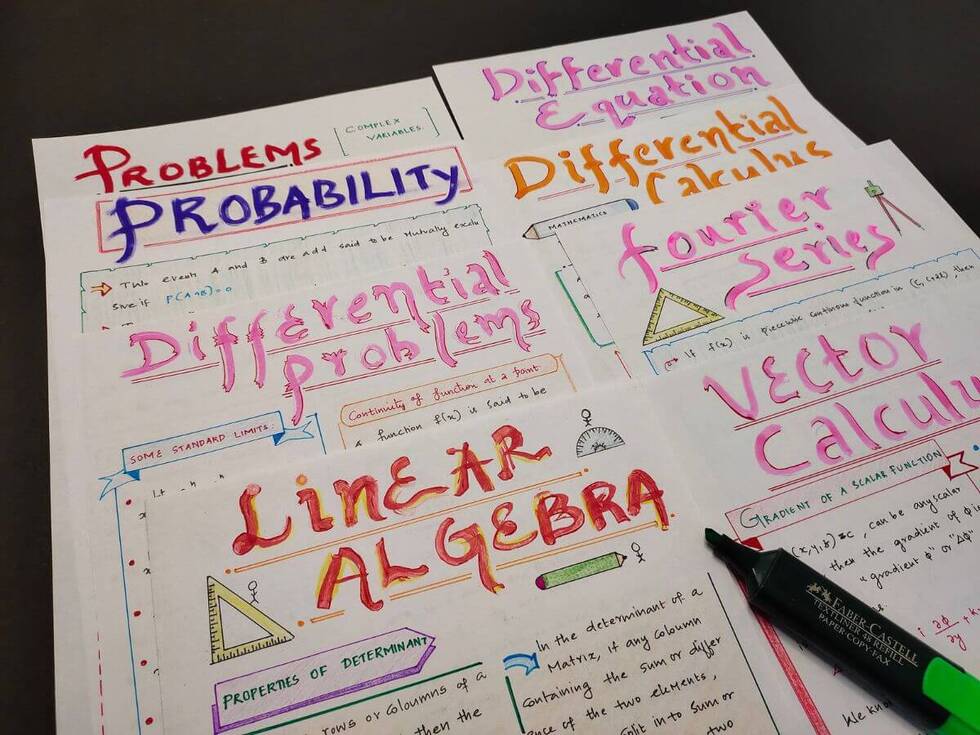 PROBLEMS
COMPLEX
VARIABLES.
PROBABILITY
Two events A and B are add said to be Mutually exclu
sive if P(A∩B)=0
Differential
Equation
Differential
Calculus
MATHEMATICS
fourier
series
If f(x) is piecewise continuous function in (C, C+2l) then
Differential
problems
SOME STANDARD LIMITS:
Continuity of function at a point
a function f(x) is said to be
VECTOR
Calculu
GRADIENT OF A SCALAR FUNCTION
(x,y,z)=c, can be any scalar
then the gradient of ϕ i
"gradient ϕ" or "Δϕ"
LinEAR
ALGEBRA
PROPERTIES OF DETERMINANT
rows or Coloumns of a
then the
In the determinant of a
Matrix, if any Coloumn
Containing the sum or differ
ence of the two elements,
split in to sum or
two
We kno
FABER-CASTELL
TEXTLINER 48 REFILL
PAPER·COPY·FAX